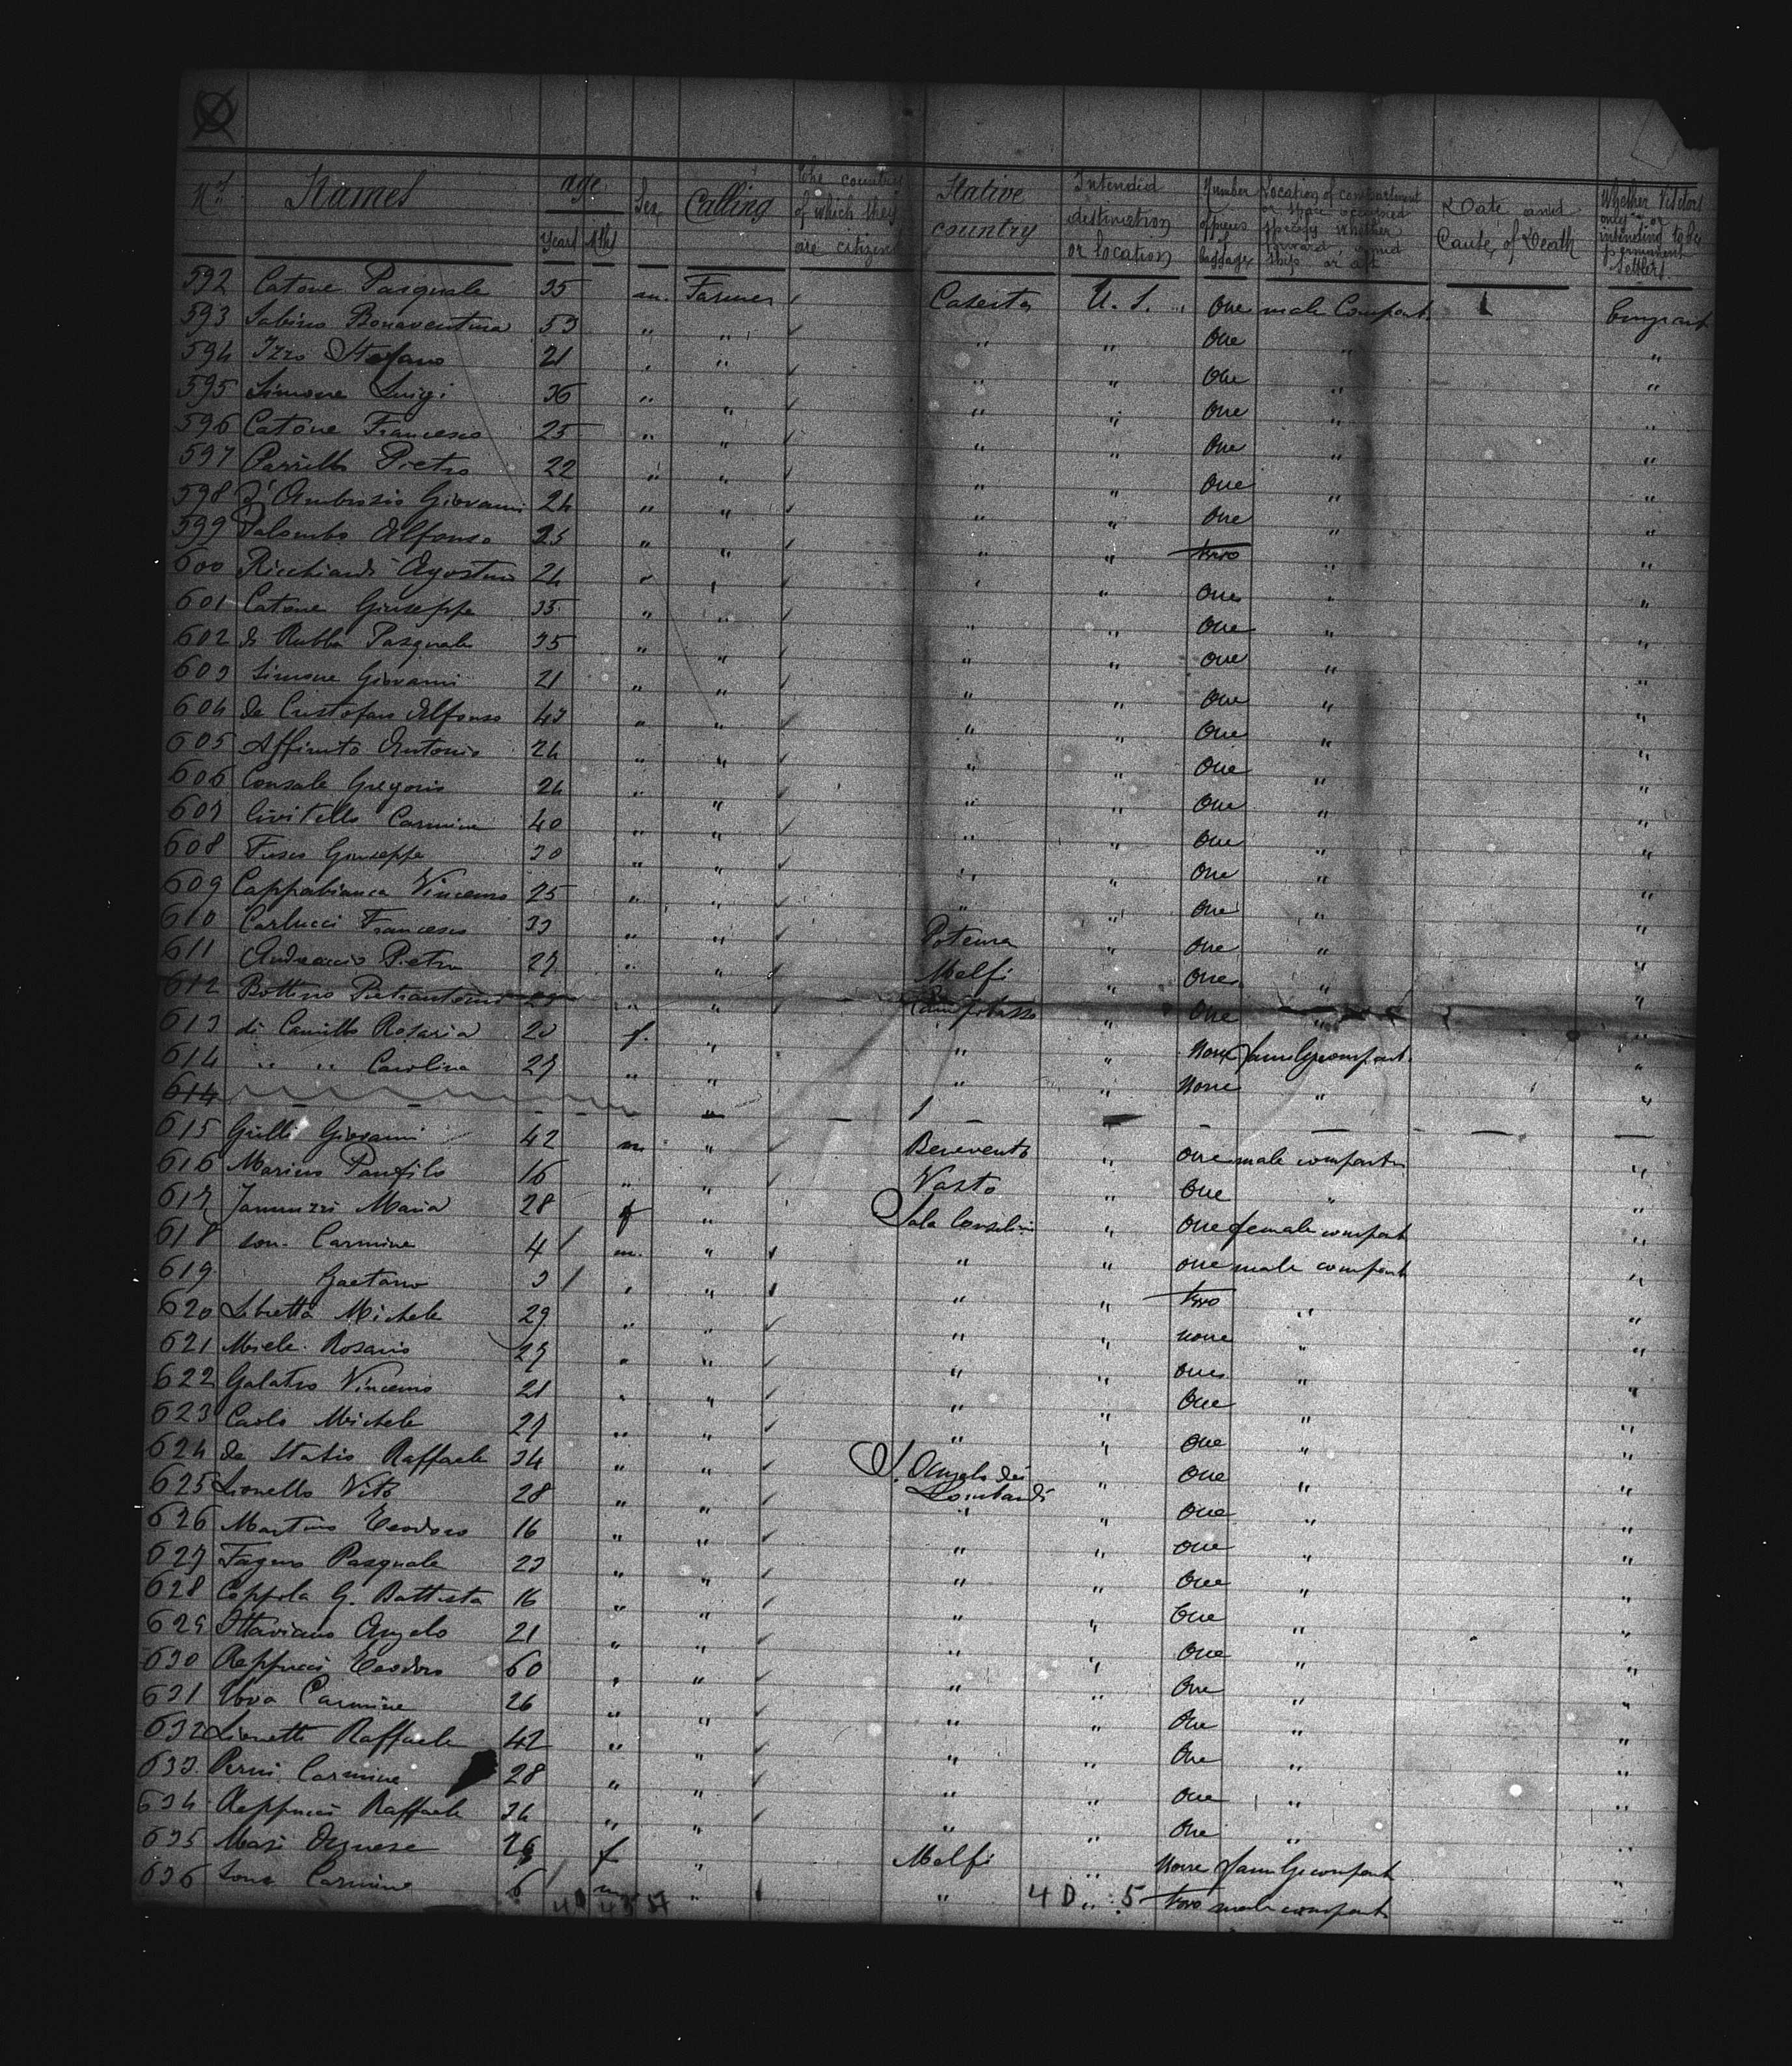 No. Names age Sex Calling The country of which they are citizens Native country Intended destination or location Number of pieces of baggage Location of compartment or space occupied specify whether forward, amid ship or aft Date and Cause of Death Whether Visitors only or intending to be permanent Settlers.
Years Mths
592 Catone Pasquale 35 m. Farmer Caserta U. S. One male Compart. Emigrant
593 Sabino Bonaventura 53 " " " " One " "
594 Izzo Stefano 21 " " " " One " "
595 Simone Luigi 36 " " " " One " "
596 Catone Francesco 25 " " " " One " "
597 Parrillo Pietro 22 " " " " One " "
598 D'Ambrosio Giovanni 24 " " " " One " "
599 Palombo Alfonso 25 " " " " two " "
600 Ricchiardi Agostino 24 " " " " One " "
601 Catone Giuseppe 35 " " " " One " "
602 di Rubba Pasquale 35 " " " " One " "
603 Simone Giovanni 21 " " " " One " "
604 de Cristofaro Alfonso 43 " " " " One " "
605 Affinito Antonio 24 " " " " One " "
606 Consale Gregorio 24 " " " " One " "
607 Civitello Carmine 40 " " " " One " "
608 Fusco Giuseppe 30 " " " " One " "
609 Cappabianca Vincenzo 25 " " " " One " "
610 Carlucci Francesco 33 " " Potenza " One " "
611 Andreaccio Pietro 27 " " Melfi " One " "
612 Bottino Pietrantonio " " Campobasso " One " "
613 di Camillo Rosaria 20 f. " " " None family compart. "
614 " " Carolina 27 " " " " None " "
614
615 Grilli Giovanni 42 m " Benevento " One male compart. "
616 Marino Panfilo 16 " " Vasto " One " "
617 Jannuzzi Maria 28 f " Sala Consilina " One female compart "
618 son. Carmine 4 m. " " " one male compart "
619 Gaetano 3 " " " " two " "
620 Libretta Michele 29 " " " " none " "
621 Miele Rosario 27 " " " " one " "
622 Galatro Vincenzo 21 " " " " One " "
623 Carlo Michele 27 " " " " One " "
624 de Stasio Raffaele 34 " " S. Angelo dei Lombardi " One " "
625 Lionello Vito 28 " " " " One " "
626 Martino Teodoro 16 " " " " One " "
627 Fagno Pasquale 23 " " " " One " "
628 Coppola G. Battista 16 " " " " One " "
629 Ottaviano Angelo 21 " " " " One " "
630 Reppucci Teodoro 60 " " " " One " "
631 Uva Carmine 26 " " " " One " "
632 Lionetti Raffaele 42 " " " " One " "
633 Perni Carmine 28 " " " " One " "
634 Reppucci Raffaele 34 " " " " One " "
635 Masi Agnese 26 f " Melfi " None family compart "
636 Son Carmine 6 m " " " two male compart. "
4 D 5